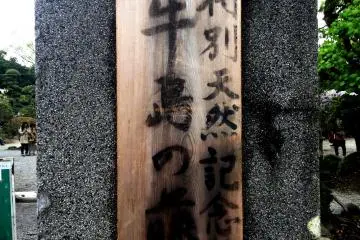 特別天然記念
牛島の藤